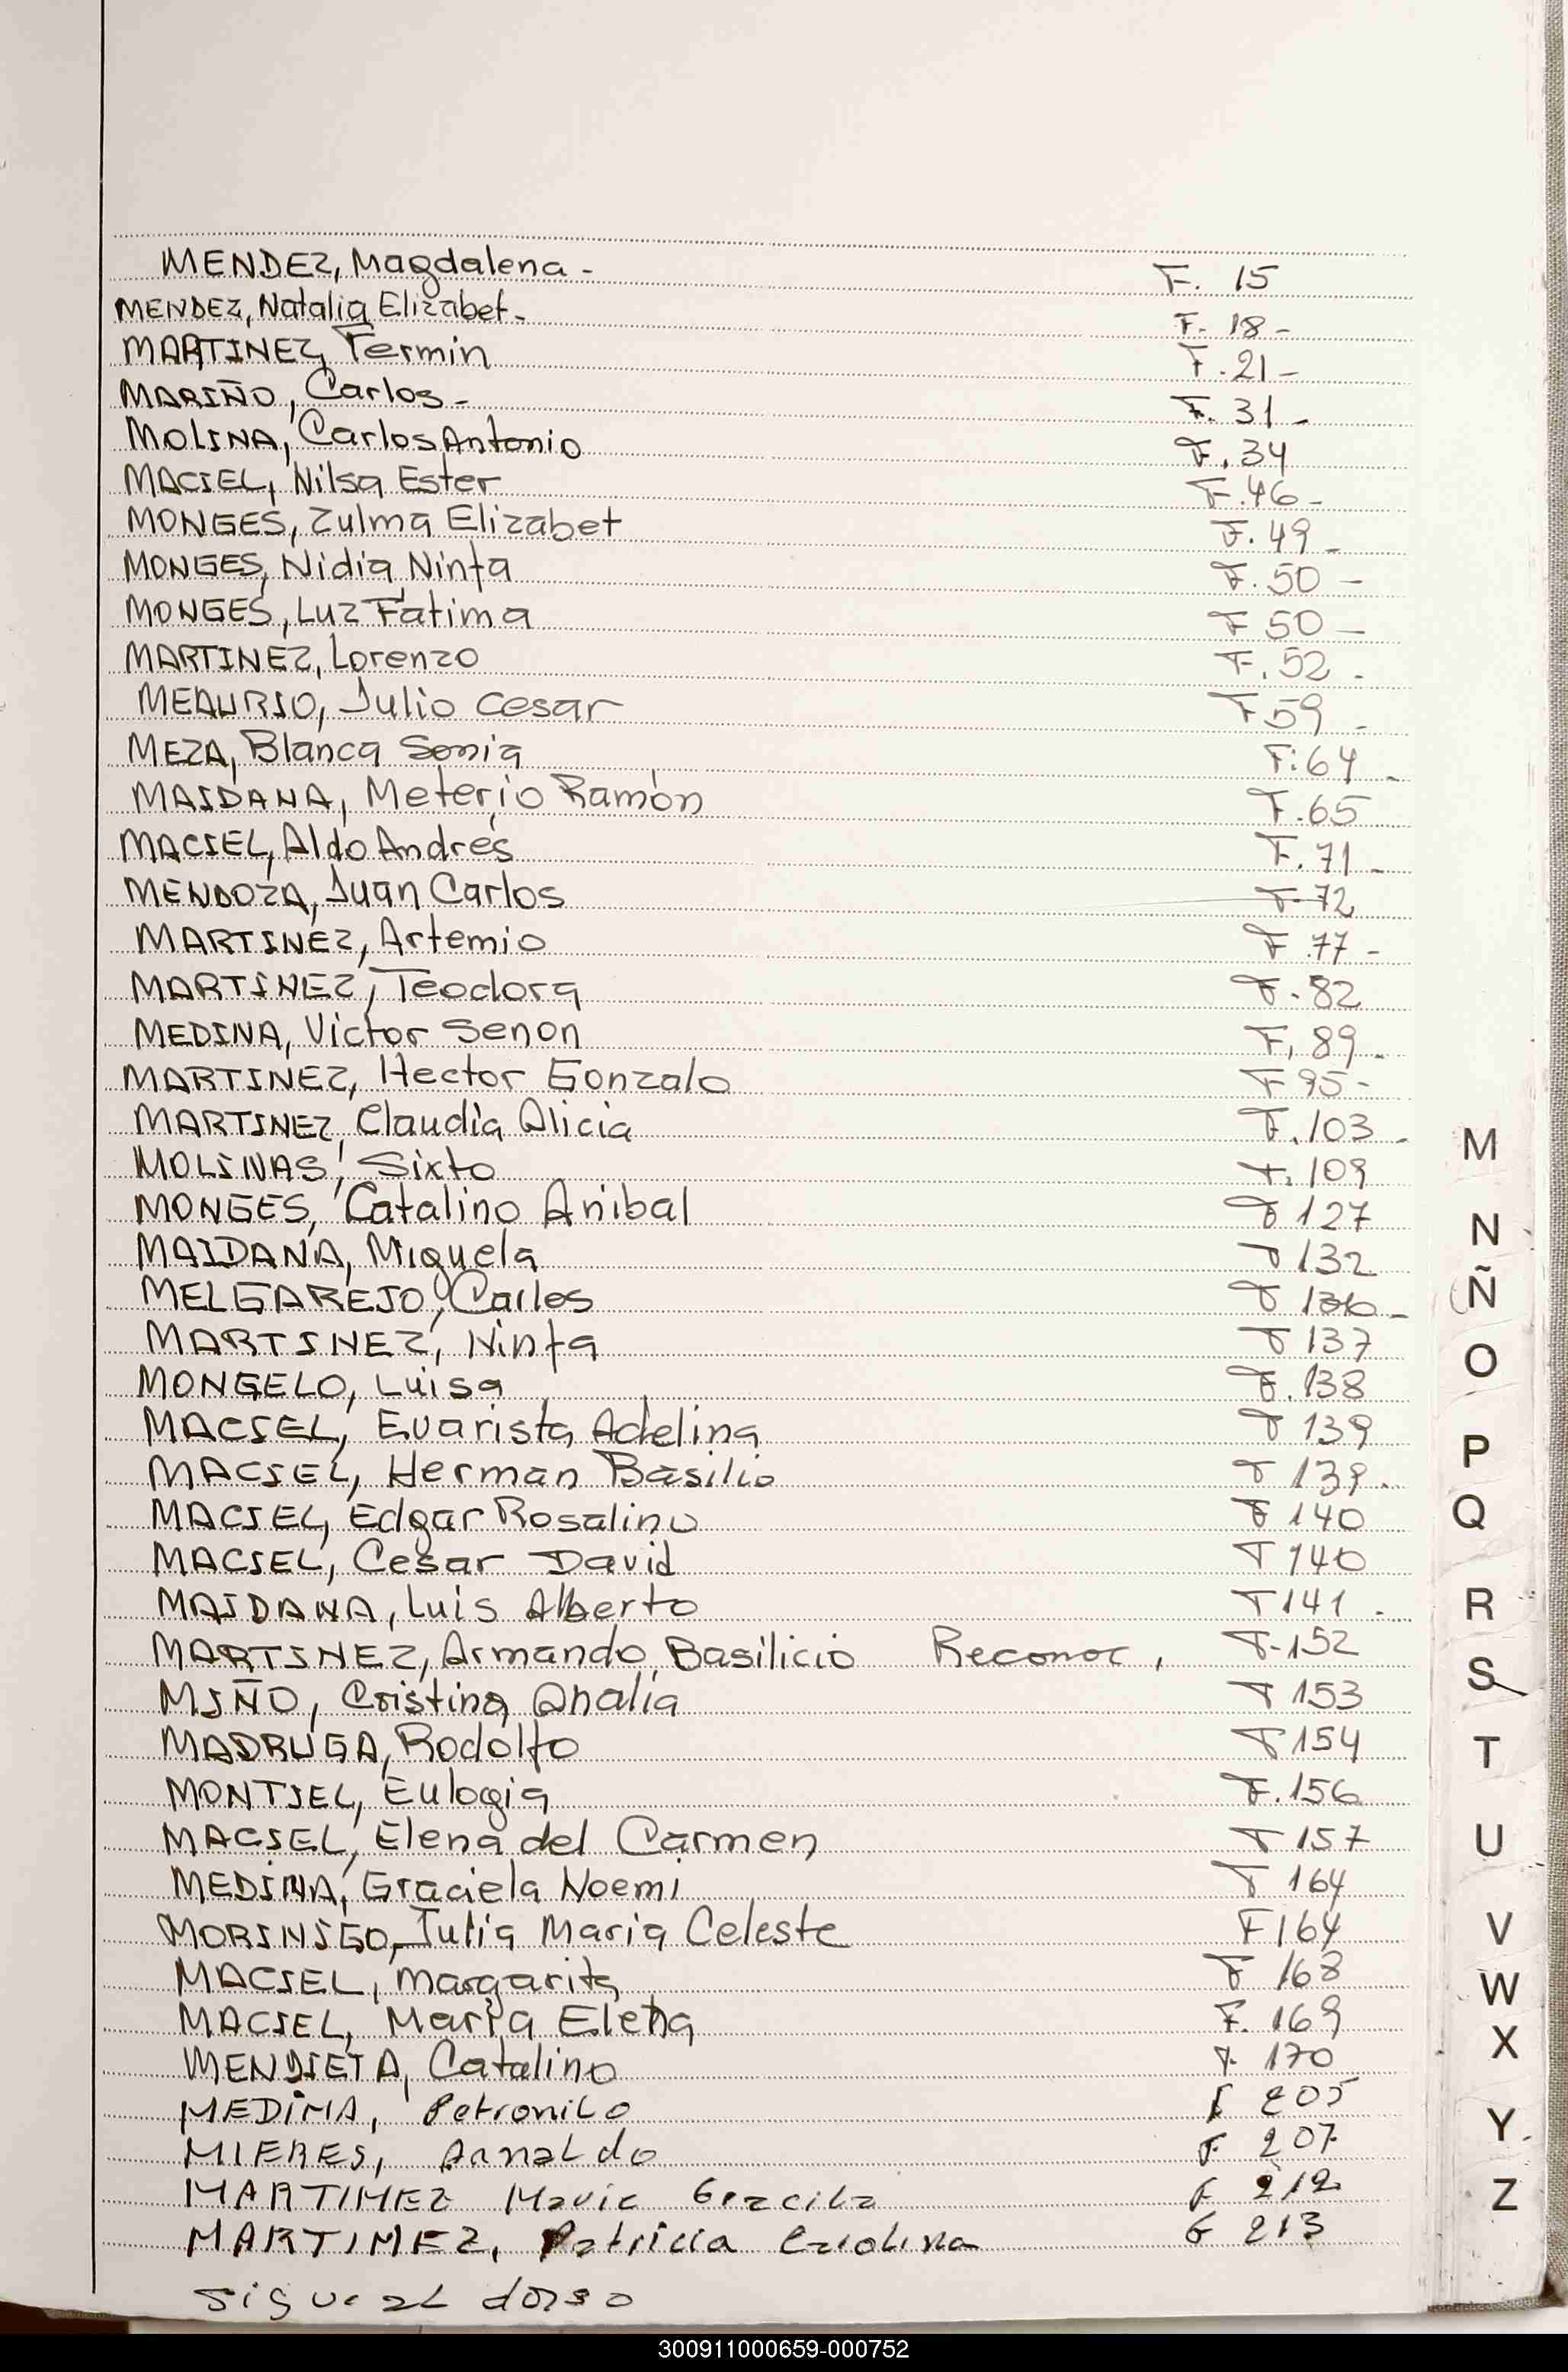 MENDEZ, Magdalena - F. 15
MENDEZ, Natalia Elizabet - F. 18 -
MARTINEZ, Fermin F. 21 -
MARIÑO, Carlos - F. 31 -
MOLINA, Carlos Antonio F. 34
MACIEL, Nilsa Ester F. 46 -
MONGES, Zulma Elizabet F. 49 -
MONGES, Nidia Ninfa F. 50 -
MONGES, Luz Fatima F 50 -
MARTINEZ, Lorenzo F. 52 -
MEAURIO, Julio Cesar F 59 -
MEZA, Blanca Sonia F: 64 -
MAIDANA, Meterio Ramón F. 65
MACIEL, Aldo Andrés F. 71 -
MENDOZA, Juan Carlos F- 72
MARTINEZ, Artemio F 77 -
MARTINEZ, Teodora F. 82
MEDINA, Victor Senon F, 89 -
MARTINEZ, Hector Gonzalo F 95 -
MARTINEZ, Claudia Alicia F. 103 -
MOLINAS, Sixto F. 109
MONGES, Catalino Anibal F 127
MAIDANA, Miguela F 132
MELGAREJO, Carlos F 136 -
MARTINEZ, Ninfa F 137
MONGELO, Luisa F. 138
MACIEL, Evarista Adelina F 139
MACIEL, Herman Basilio F 139 -
MACIEL, Edgar Rosalino F 140
MACIEL, Cesar David F 140
MAIDANA, Luis Alberto F 141 -
MARTINEZ, Armando Basilicio Reconoc, F-152
MIÑO, Cristina Analia F 153
MADRUGA, Rodolfo F 154
MONTIEL, Eulogia F. 156
MACIEL, Elena del Carmen F 157
MEDINA, Graciela Noemi F 164
MORINIGO, Julia Maria Celeste F 164
MACIEL, Margarita F 168
MACIEL, Maria Elena F. 169
MENDIETA, Catalino F. 170
MEDINA, Petronilo F 205
MIERES, Arnaldo F. 207
MARTINEZ Maria Graciela F 212
MARTINEZ, Patricia Carolina F 213
Sigue al dorso
M
N
Ñ
O
P
Q
R
S
T
U
V
W
X
Y
Z
300911000659-000752